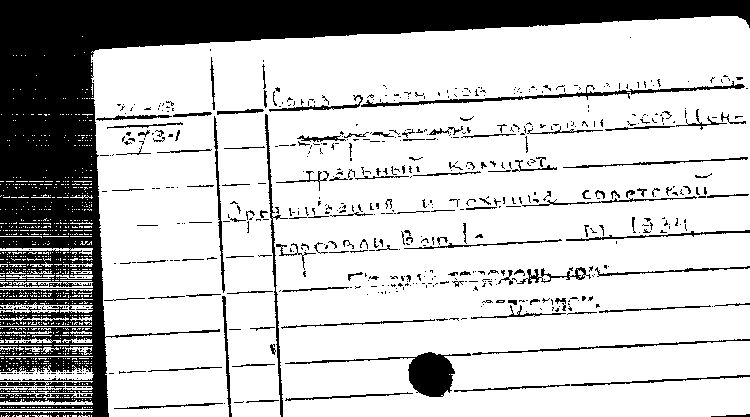 31-13
673-1
Союз работников кооперации и го-
торговли СССР. Цен-
тральный комитет.
Организация и техника советской
торговли. Вып. 1-
М, 1934